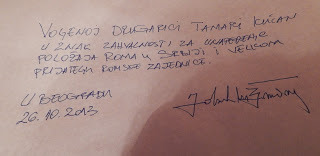 VOLJENOJ DRUGARICI TAMARI
U ZNAK ZAHVALNOSTI ZA UNAPREĐENJE
POLOŽAJA ROMA U SRBIJI I VELIKOM
PRIJATELJU ROMSKE ZAJEDNICE.
U BEOGRADU
26.10.2013